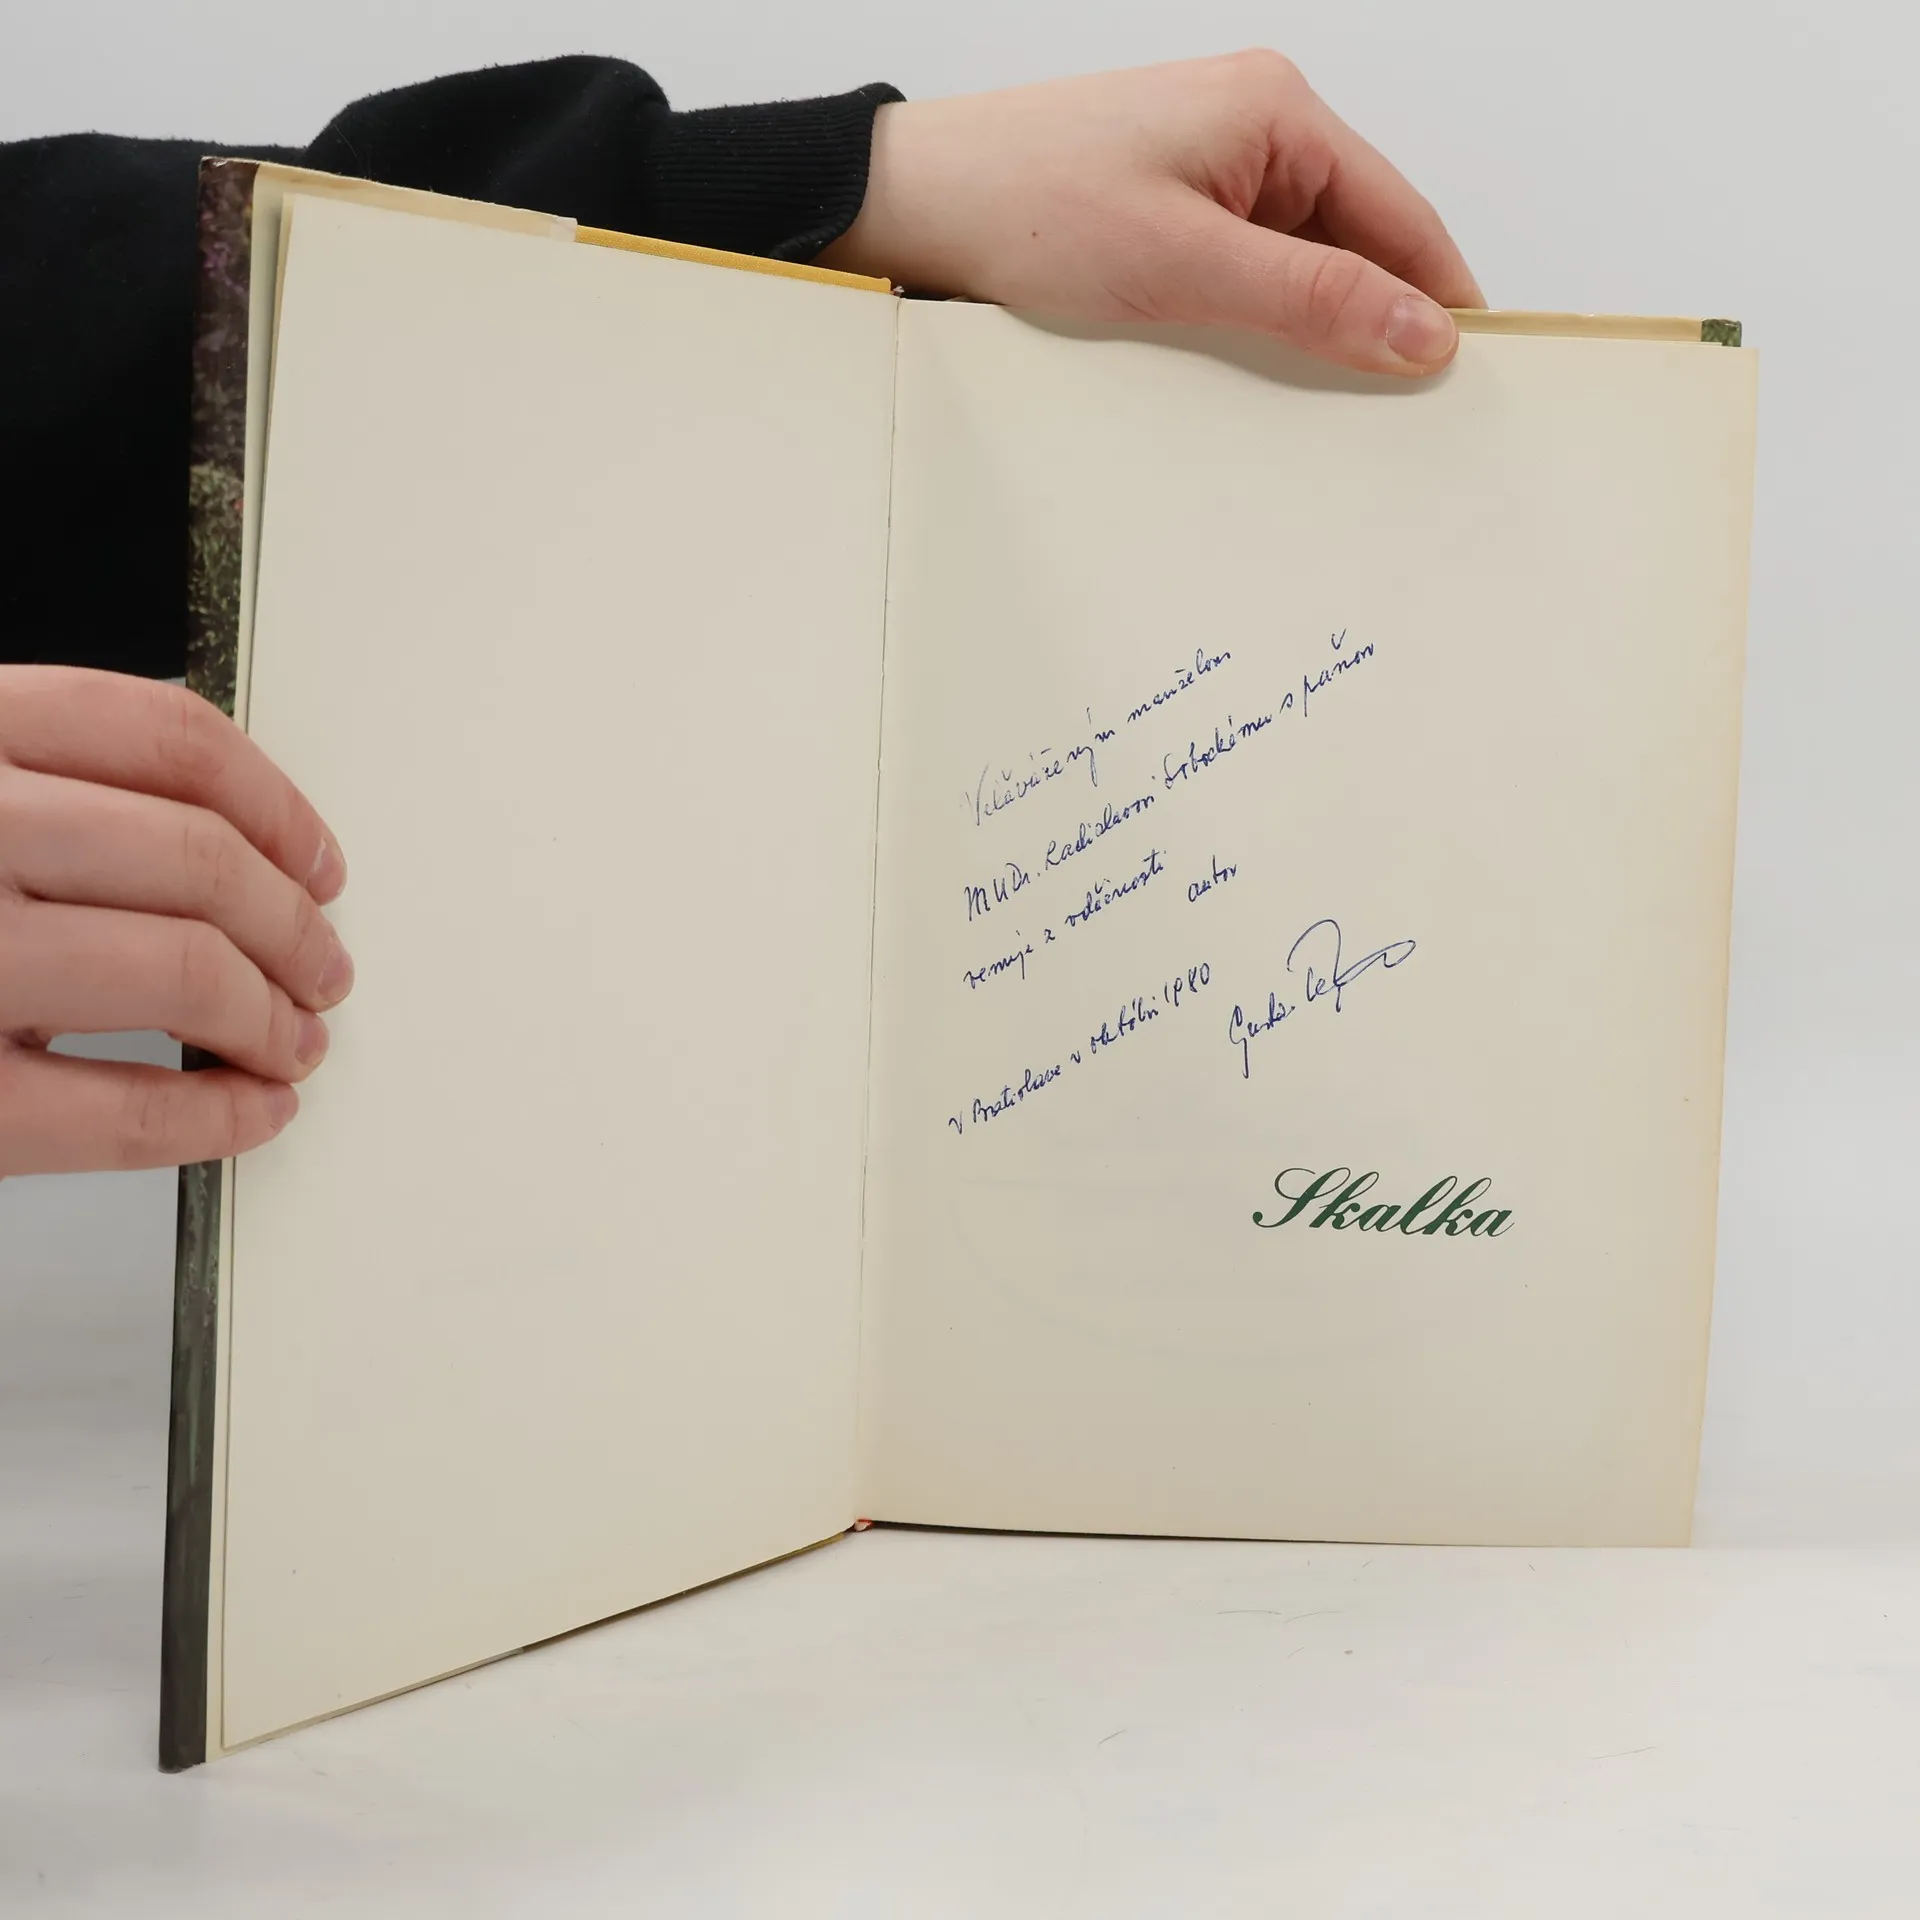 Veľaváženým manželom
MUDr. Ladislavovi Srbeckému s paňou
venuje z vďačnosti autor
V Bratislave v októbri 1980
Skalka